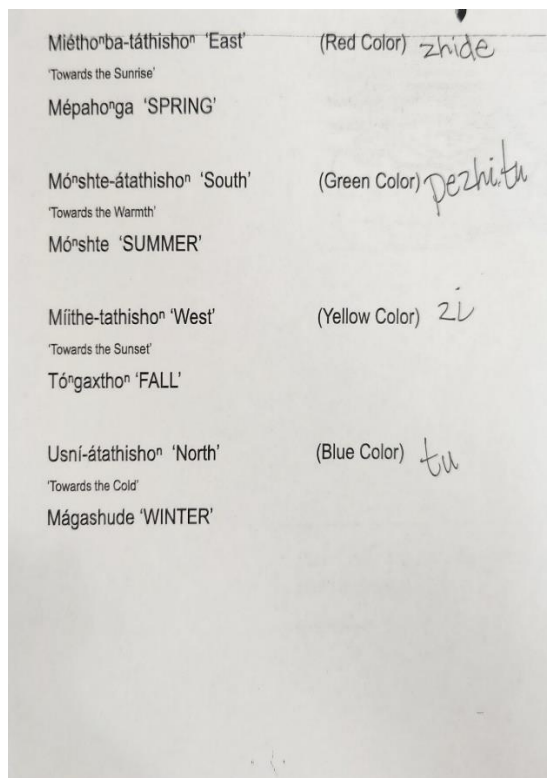 Miéthoⁿba-táthishoⁿ 'East' (Red Color) zhide
'Towards the Sunrise'
Mépahoⁿga 'SPRING'
Móⁿshte-átathishoⁿ 'South' (Green Color) pezhitu
'Towards the Warmth'
Móⁿshte 'SUMMER'
Míithe-tathishoⁿ 'West' (Yellow Color) zi
'Towards the Sunset'
Tóⁿgaxthoⁿ 'FALL'
Usní-átathishoⁿ 'North' (Blue Color) tu
'Towards the Cold'
Mágashude 'WINTER'